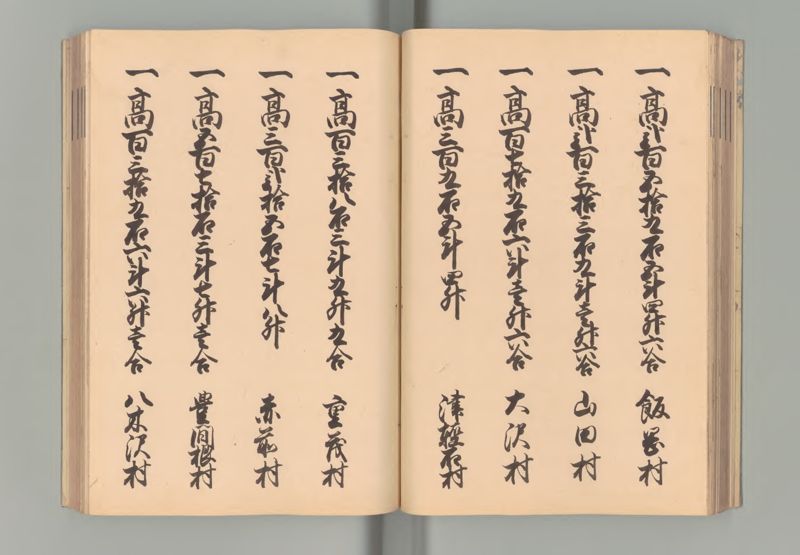 一高弐百五拾九石五斗四升六合 飯岡村
一高弐百三拾三石九斗壱升六合 山田村
一高百七拾九石六斗壱升六合 大沢村
一高三百九石五斗四升 津軽石村
一高百三拾八石三斗九升九合 重茂村
一高三百弐拾五石七斗八升 赤前村
一高五百七拾石三斗七升壱合 豊間根村
一高百三拾九石六斗六升壱合 八木沢村